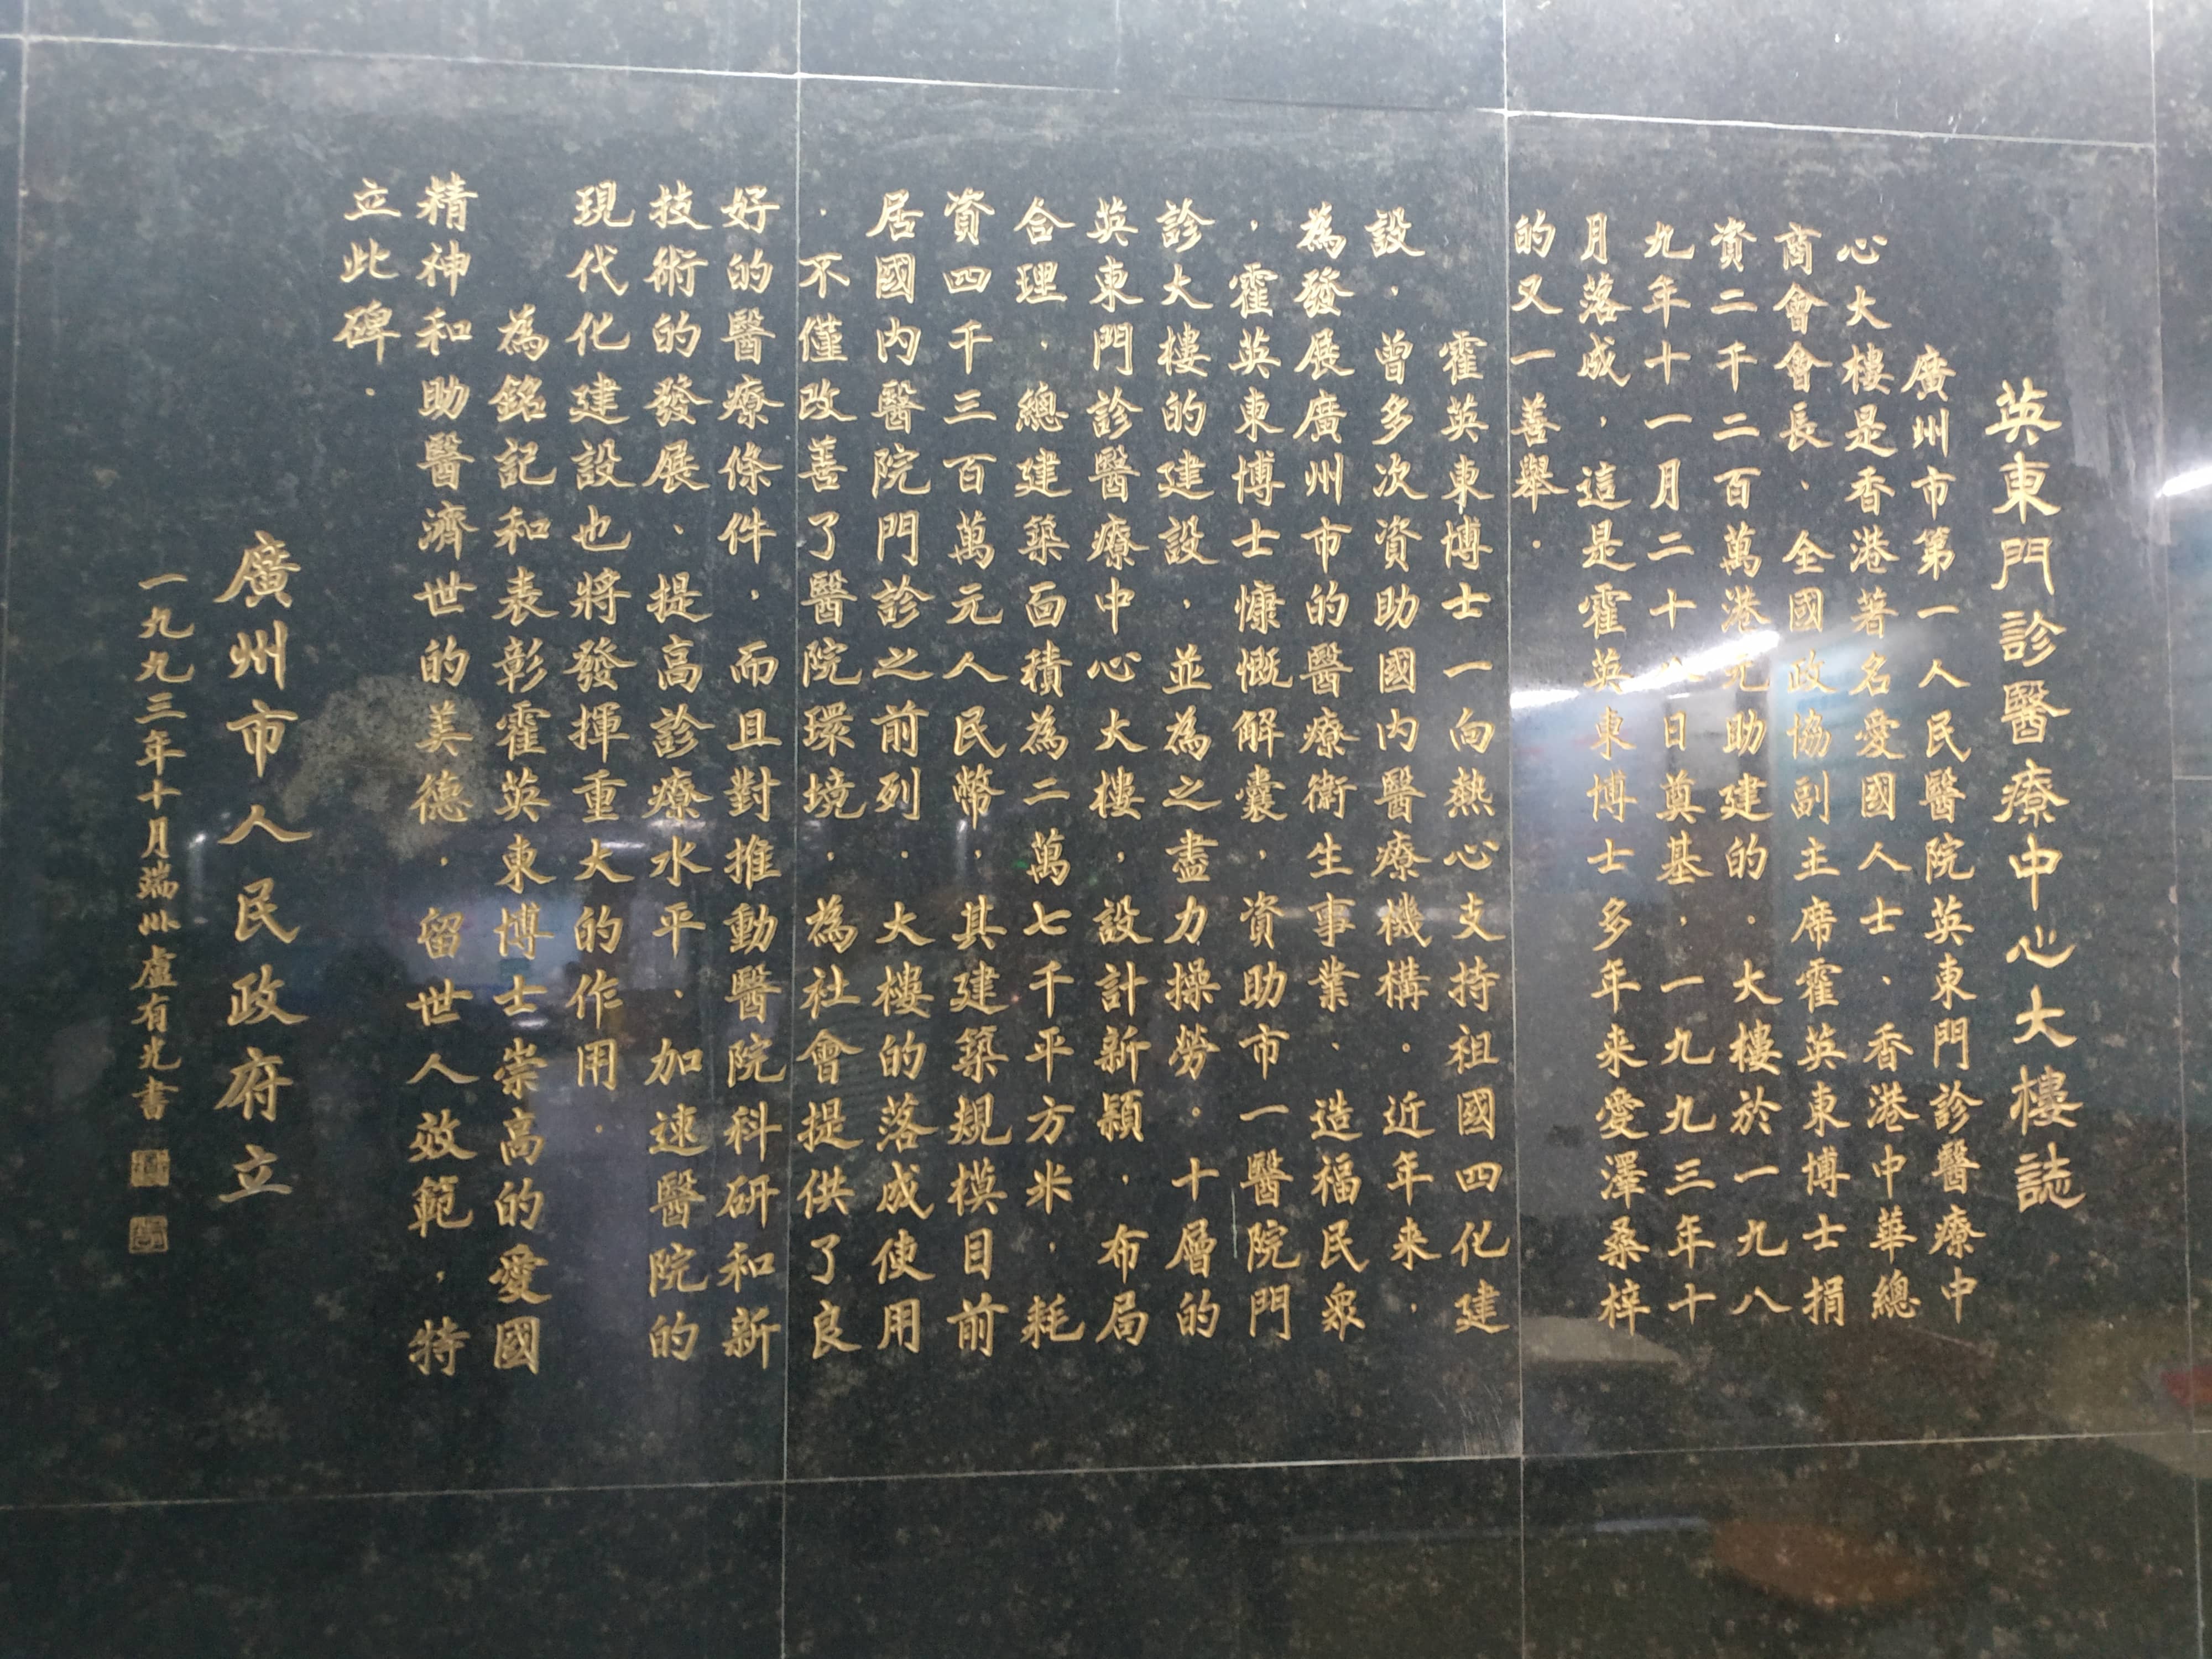 英東門診醫療中心大樓誌
廣州市第一人民醫院英東門診醫療中
心大樓是香港著名愛國人士、香港中華總
商會會長、全國政協副主席霍英東博士捐
資二千二百萬港元助建的．大樓於一九八
九年十一月二十八日奠基，一九九三年十
月落成，這是霍英東博士多年来愛澤桑梓
的又一善舉．
霍英東博士一向热心支持祖國四化建
設，曾多次資助國内醫療機構．近年来，
為發展廣州市的醫療衛生事業．造福民衆
，霍英東博士慷慨解囊，資助市一醫院門
診大樓的建設，並為之盡力操勞．十層的
英東門診醫療中心大樓，設計新穎，布局
合理．總建築面積為二萬七千平方米，耗
資四千三百萬元人民幣，其建築規模目前
居國内醫院門診之前列．大樓的落成使用
，不僅改善了醫院環境，為社會提供了良
好的醫療條件，而且對推動醫院科研和新
技術的發展、提高診療水平、加速醫院的
現代化建設也將發揮重大的作用．
為銘記和表彰霍英東博士崇高的愛國
精神和助醫濟世的美德，留世人效範，特
立此碑．
廣州市人民政府立
一九九三年十月端州盧有光書